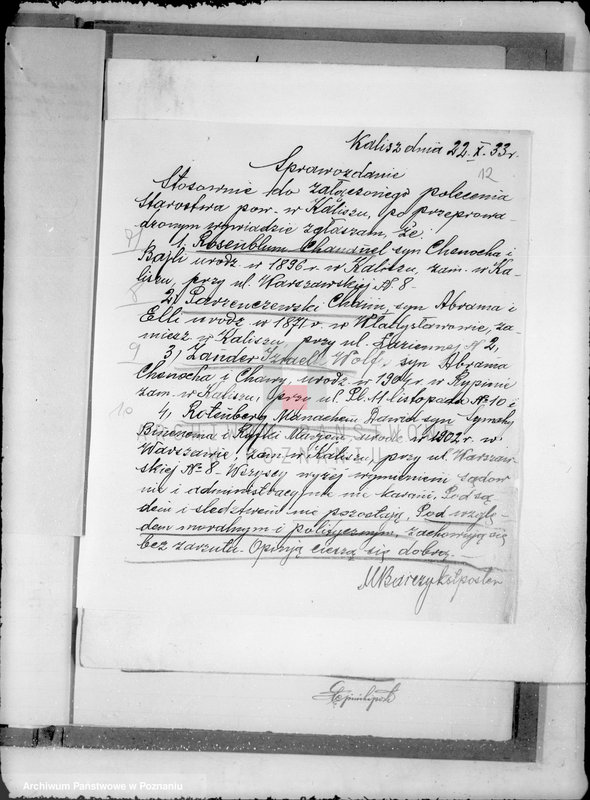 Kalisz dnia 22.X.33r.
12
Sprawozdanie
Stosownie do załączonego polecenia
Starostwa pow. w Kaliszu, po przeprowa-
dzonym wywiadzie zgłaszam, że:
7) 1, Rosenblum Chanauel syn Chenocha i
Bajli urodz w 1896 r. w Kaliszu, zam. w Ka-
liszu, przy ul. Warszawskiej № 8.
8 2, Parzenczewski Chaim, syn Abrama i
Elli urodz w 1871 r. w Władysławowie, za-
miesz w Kaliszu, przy ul. Łaziennej № 2,
9 3, Zander Izrael Wolf, syn Abrama
Chenocha i Chawy, urodz w 1904 r. w Rypinie
zam. w Kaliszu, przy ul. Pl. 11 listopada № 10 i
10 4, Rotenberg Manachem Dawid syn Symchy
i Ryfki urodz w 1902 r. w
Warszawie, zam. w Kaliszu, przy ul. Warszaw-
skiej № 8. Wszyscy wyżej wymienieni sądow
nie i administracyjnie nie karani, Pod są
dem i śledztwem nie pozostają. Pod wzglę-
dem moralnym i politycznym, zachowują się
bez zarzutu. Opinją cieszą się dobrą.-
MBarczyk st poster
ARCHIWUM PAŃSTWOWE
W POZNANIU
Archiwum Państwowe w Poznaniu